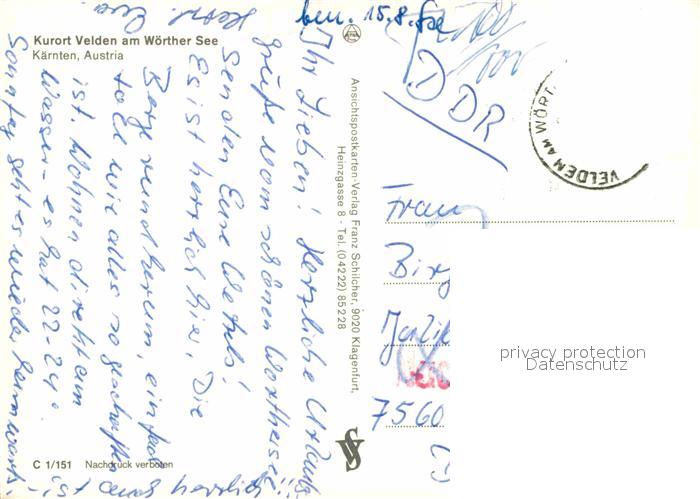 ben. 15.8.82
Kurort Velden am Wörther See
Kärnten, Austria
Ihr Lieben! Herzliche Urlaubs-
grüße vom schönen Wörthersee!!
senden Eure Wetzels!
Es ist herrlich hier, Die
Berge rundherum, einfach
toll wie alles so geschaffen
ist. Wohnen direkt am
Wasser - es hat 22-24°.
Sonntag geht es wieder heimwärts.
Herzl. Eva
herrlich ganz
Ansichtspostkarten-Verlag Franz Schilcher, 9020 Klagenfurt,
Heinzgasse 8 · Tel. (04222) 85228
DDR
VELDEN AM WÖRT
Frau
Bir
7560
privacy protection
Datenschutz
C 1/151 Nachdruck verboten